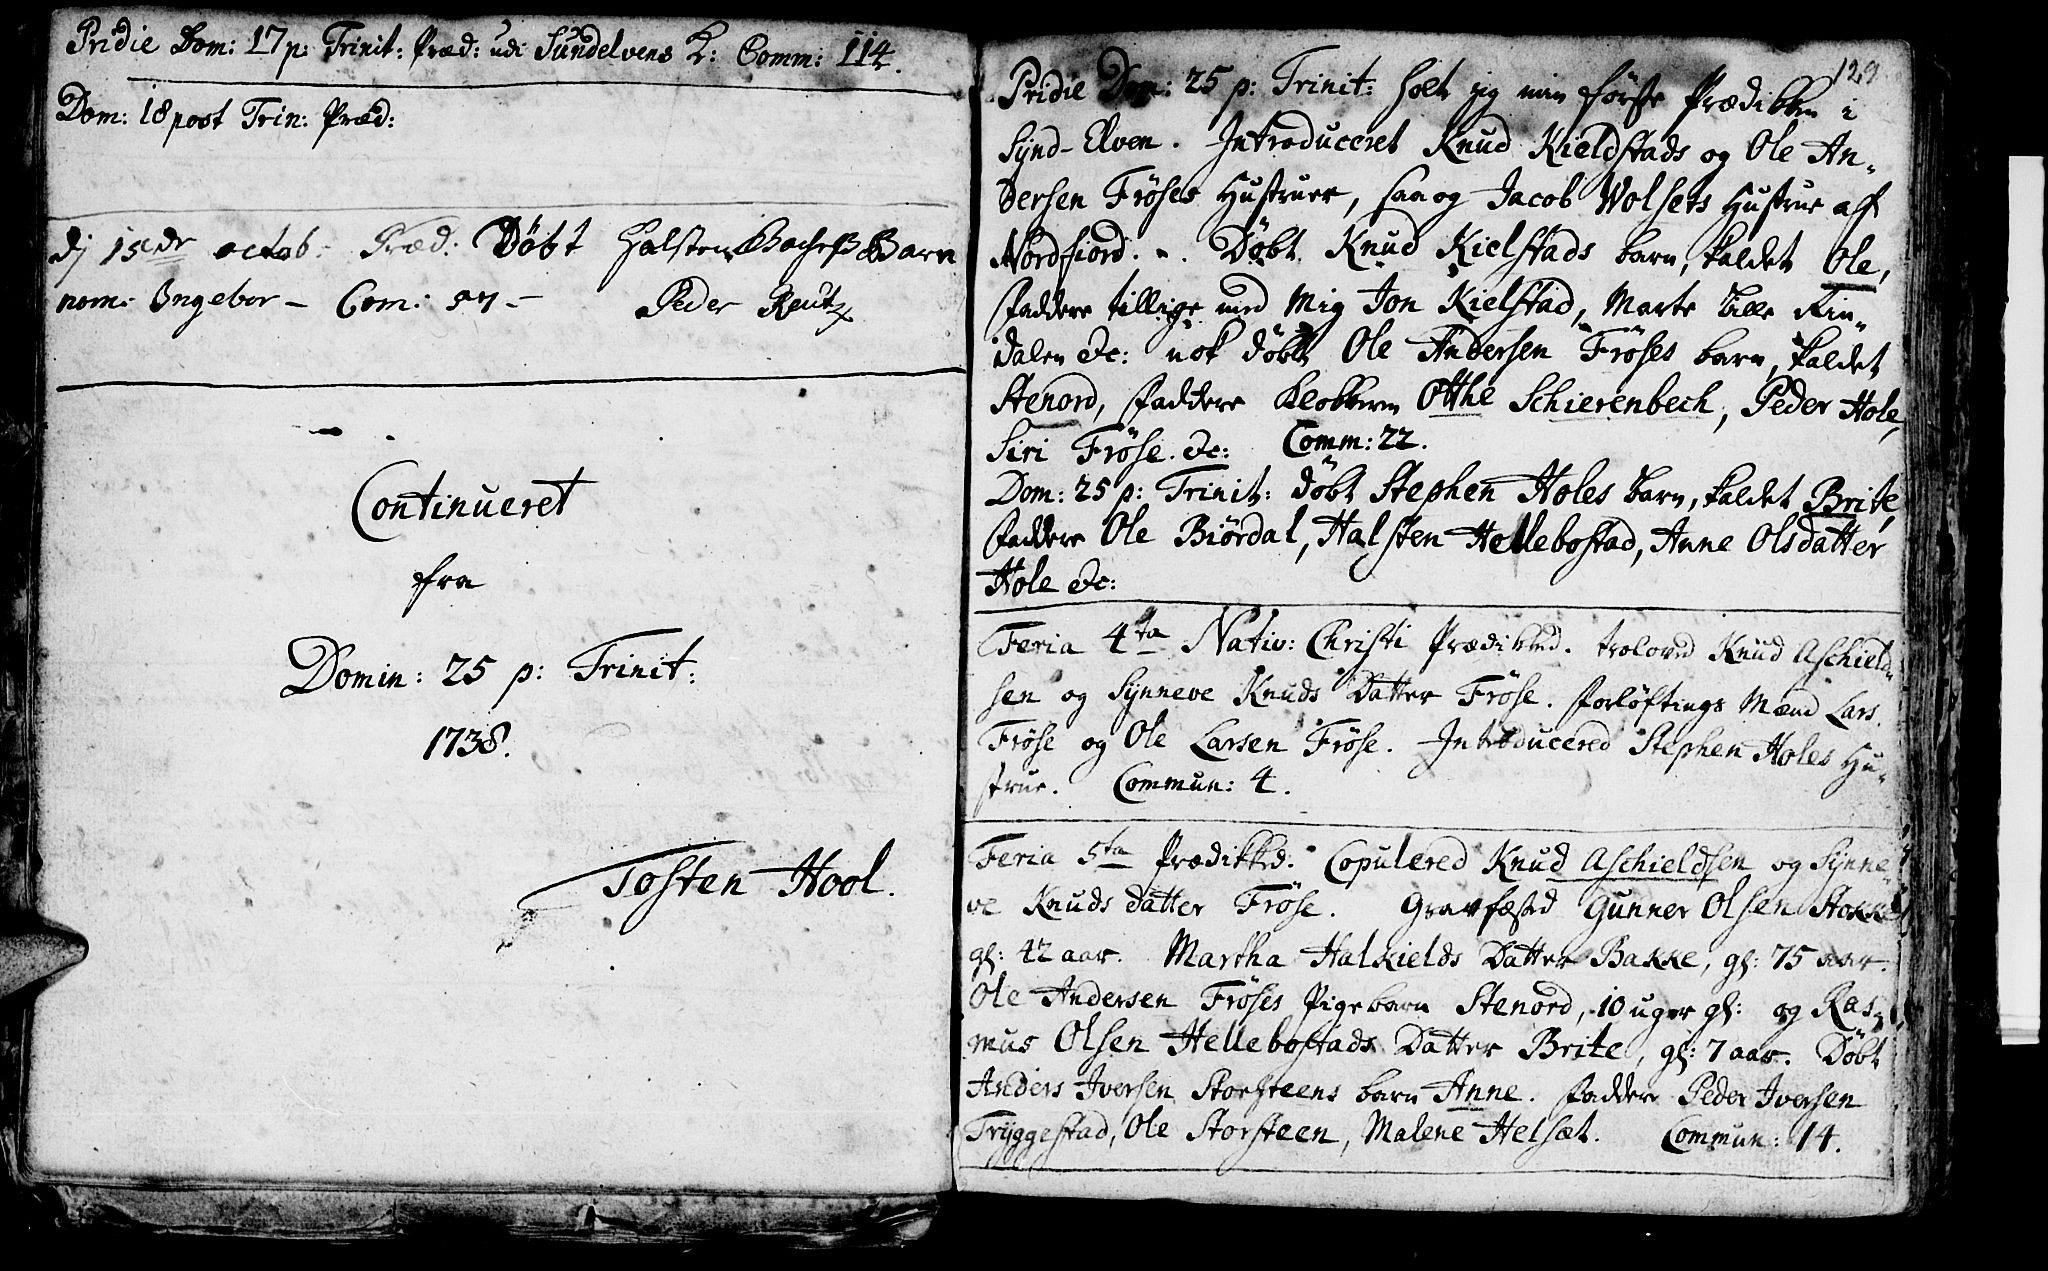 Pridie Dom: 17 p: Trinit: Præd: udi Sundelvens K: Comm: 114.
Dom: 18 post Trin: Præd:
dj 15de octob: Præd: Døbt Halsten Barn
nom: Ingebor – Com: 57 – Peder Reutz
Continueret
fra
Domin: 25 p: Trinit:
1738.
Tosten Hool.
129
Pridie Dom: 25 p: Trinit: holt jeg min første Prædikken i
Synd-Elven. Introduceret Knud Kieldstads og Ole An-
dersen Frøses Hustruer, saa og Jacob Wolsets Hustrue af
Nordfiord. Døbt Knud Kielstads barn, kaldet Ole,
Faddere tillige med Mig Jon Kielstad, Marte Lille Rin-
dalen &c: nok døbt Ole Andersen Frøses barn, kaldet
Stenord, Faddere Klokkeren Otthe Schierenbech, Peder Hole,
Siri Frøse. &c: Comm: 22.
Dom: 25 p: Trinit: døbt Stephen Holes barn, kaldet Brite,
Faddere Ole Biørdal, Halsten Hellebostad, Anne Olsdatter
Hole &c:
Feria 4ta Nativ: Christi Prædikked. troloved Knud Aschield-
sen og Synneve Knuds Datter Frøse. Forløftings Mænd Lars
Frøse og Ole Larsen Frøse. Introducered Stephen Holes Hu-
strue. Commun: 4.
Feria 5ta Prædikked. Copulered Knud Aschieldsen og Synne-
ve Knuds datter Frøse. Gravfæsted Gunner Olsen Stokke
gl: 42 aar. Martha Halkields Datter Bakke, gl: 75 aar.
Ole Andersen Frøses Pigebarn Stenord, 10 uger gl: og Ras-
mus Olsen Hellebostads Datter Brite, gl: 7 aar. Døbt
Anders Iversen Storsteens barn Anne. Faddere Peder Iversen
Tryggestad, Ole Storsteen, Malene Helsæt. Commun: 14.